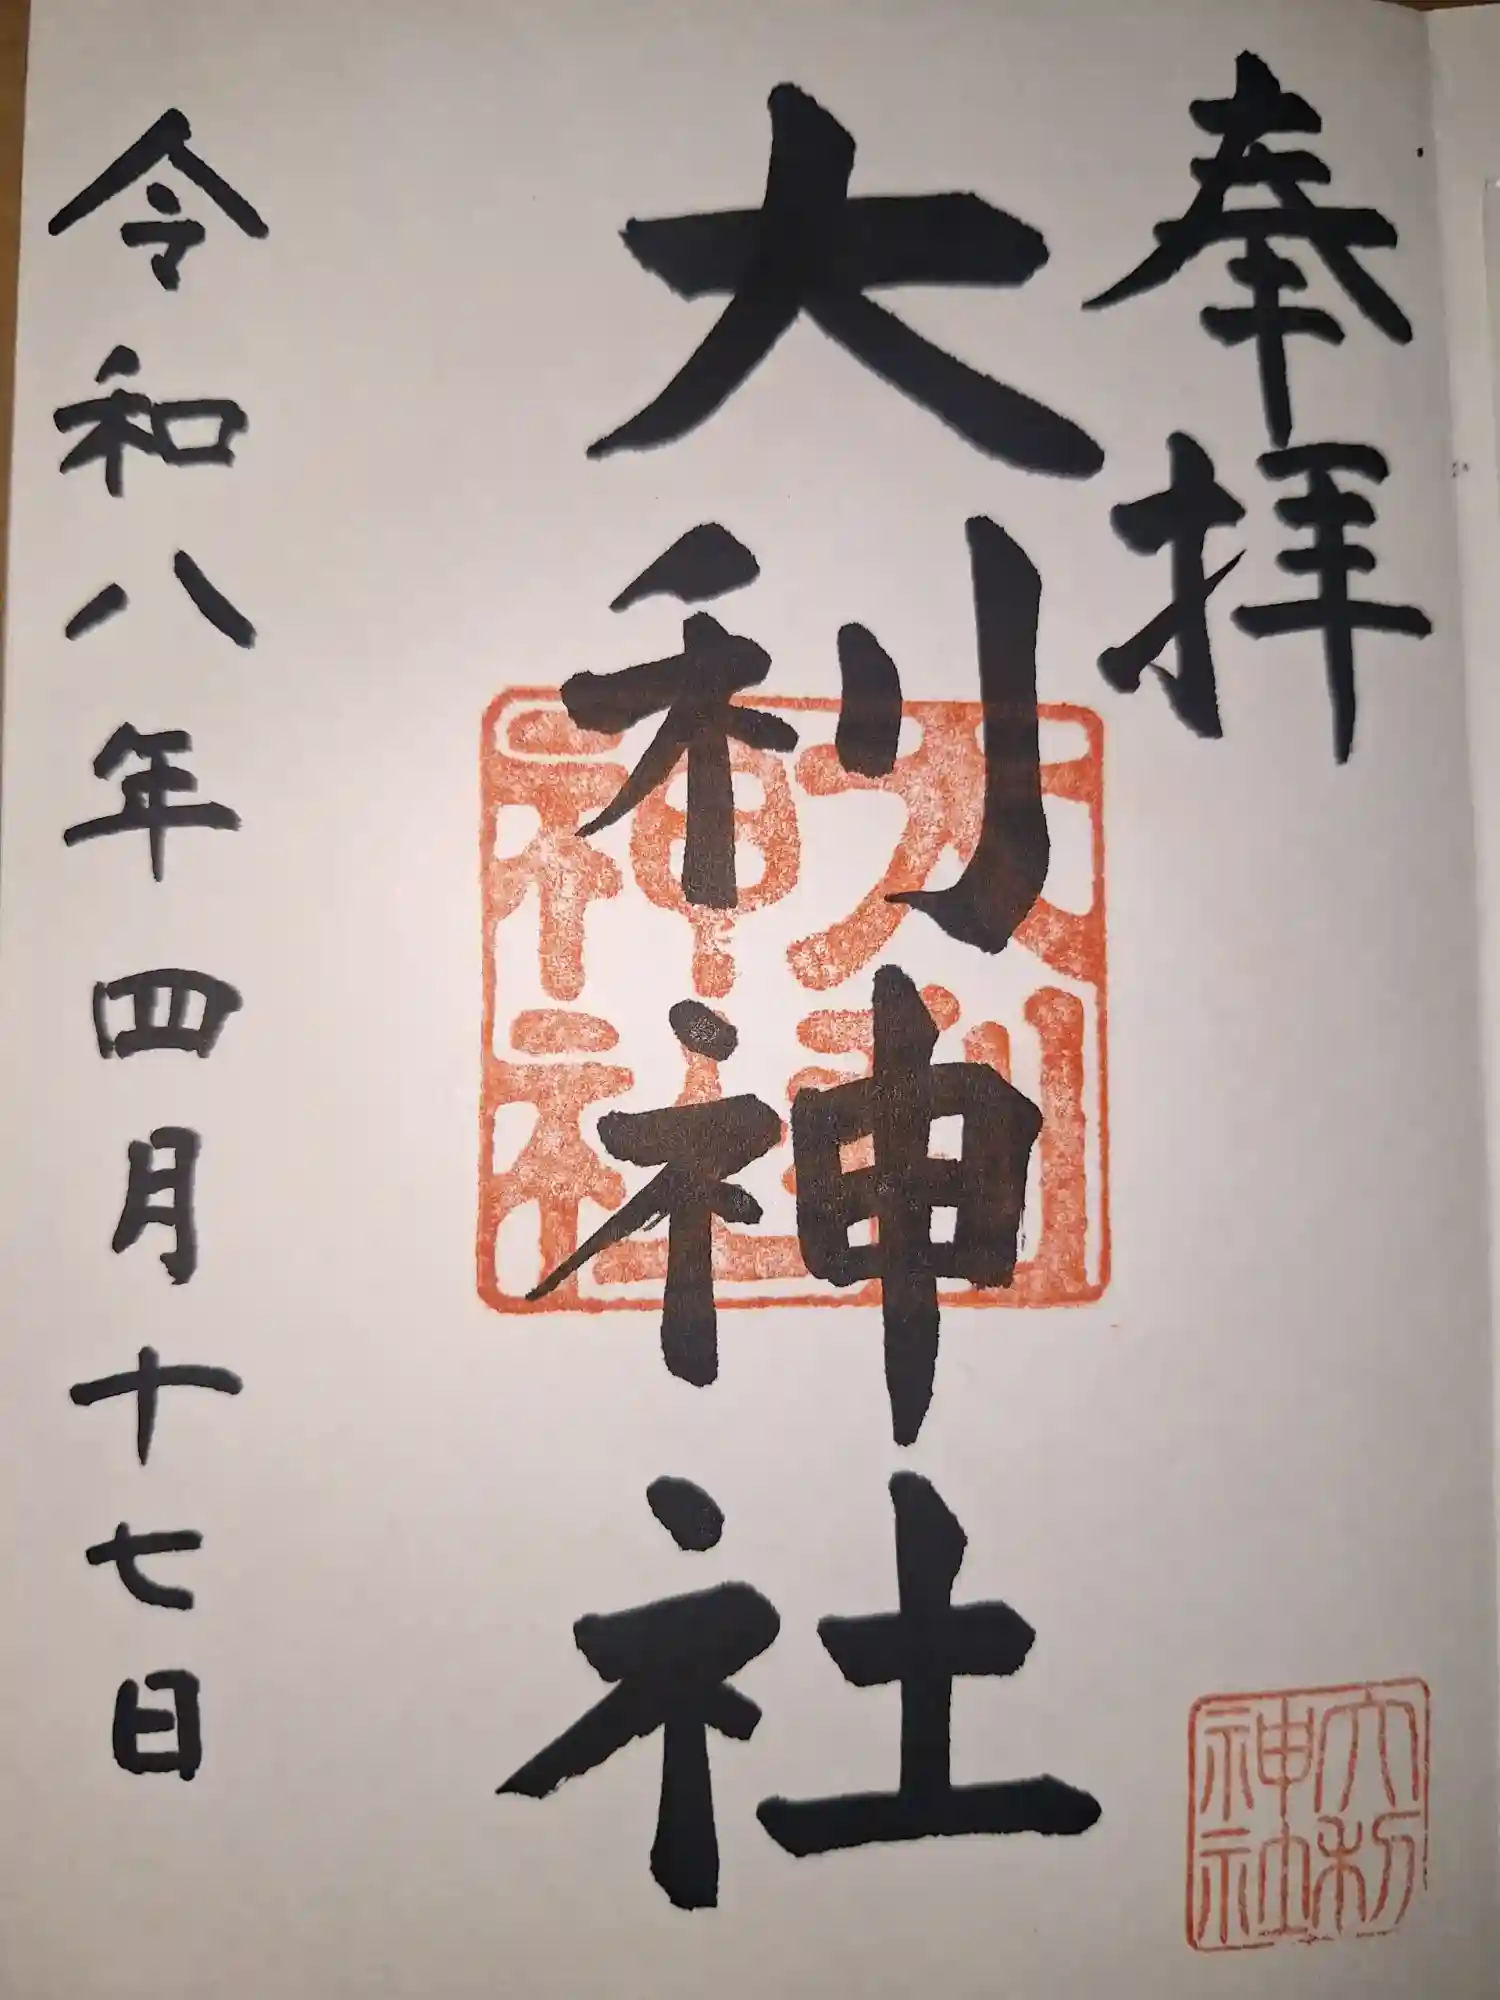 奉拝
大利神社
令和八年四月十七日
大利神社
大利神社